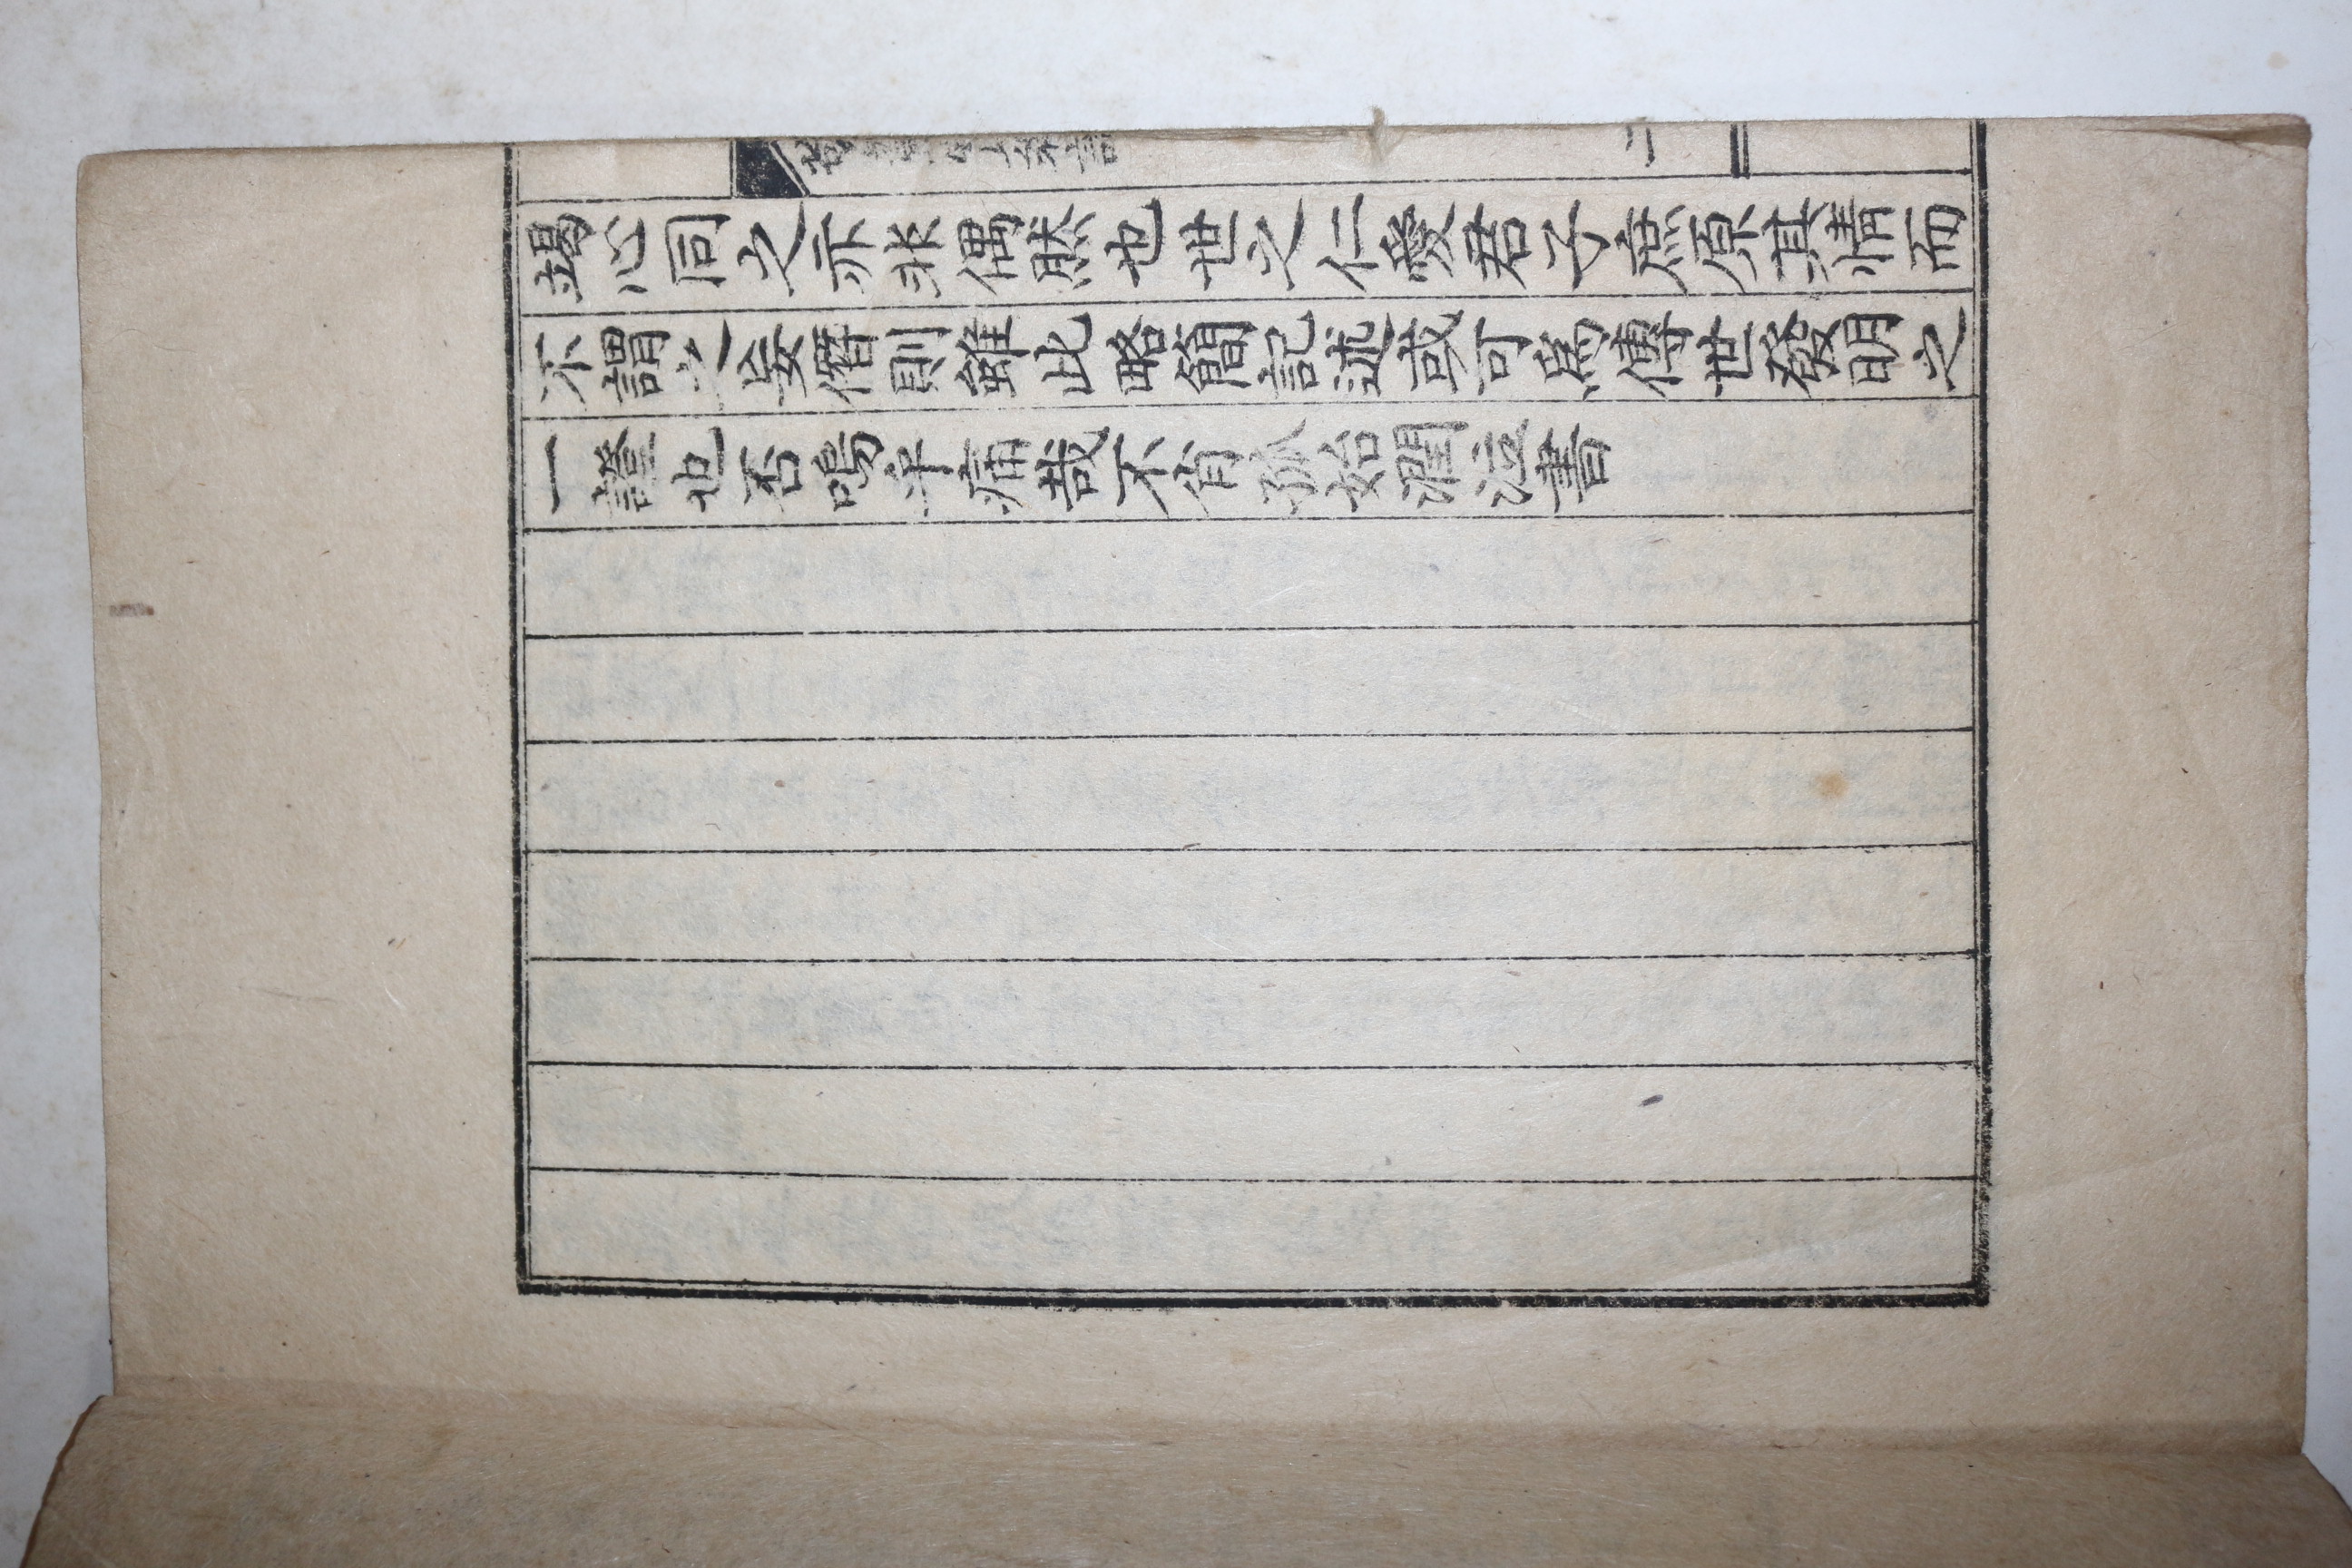 竭心同之亦非偶然也世之仁愛君子庶原其情而
不謂之妄僭則雖此略簡記述或可爲傳世發明之
一證也否嗚乎痛哉不肖孤始潤泣書
二